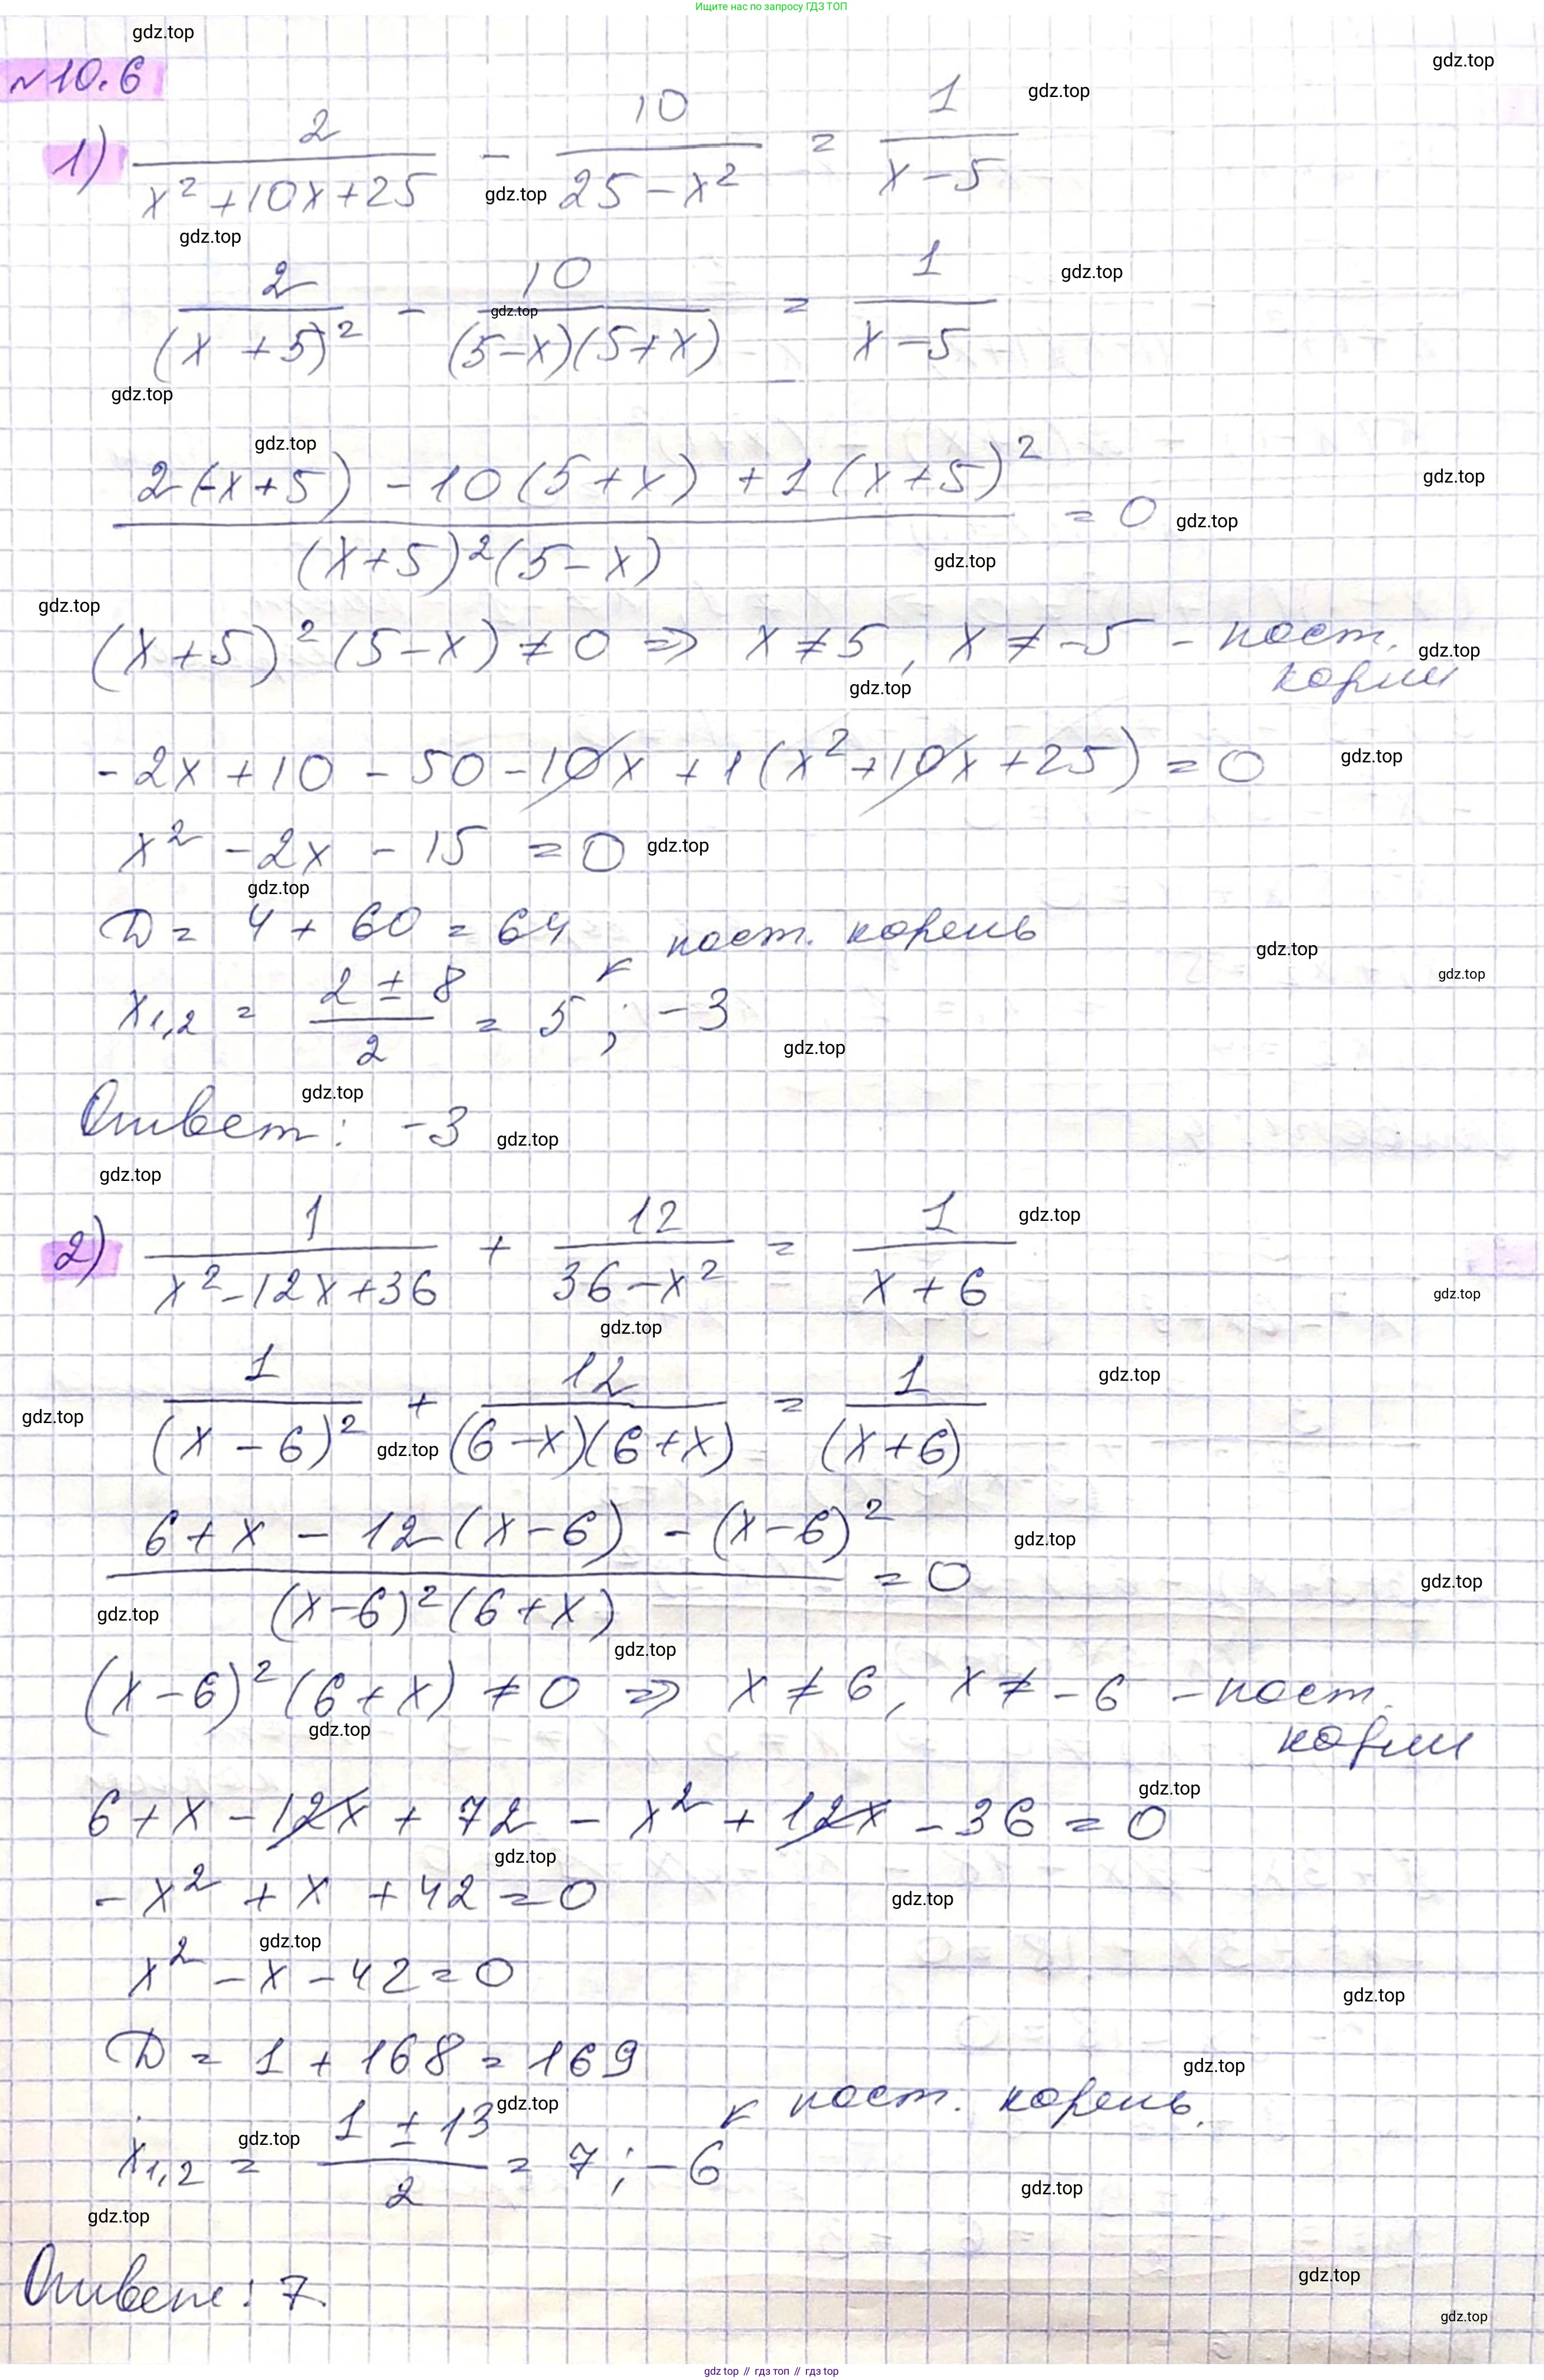 Ищите нас по запросу ГДЗ ТОП
gdz.top
№10.6
1) 2/(x²+10x+25) − 10/(25−x²) = 1/(x−5)
2/(x+5)² − 10/((5−x)(5+x)) = 1/(x−5)
(2(-x+5) − 10(5+x) + 1(x+5)²)/((x+5)²(5−x)) = 0
(x+5)²(5−x) ≠ 0 => x ≠ 5, x ≠ −5 − пост.
корни
-2x + 10 − 50 − 10x + 1(x²+10x+25) = 0
x² − 2x − 15 = 0
D = 4 + 60 = 64
пост. корень
x1,2 = (2 ± 8)/2 = 5 ; −3
Ответ: −3
2) 1/(x²−12x+36) + 12/(36−x²) = 1/(x+6)
1/(x−6)² + 12/((6−x)(6+x)) = 1/(x+6)
(6+x − 12(x−6) − (x−6)²)/((x−6)²(6+x)) = 0
(x−6)²(6+x) ≠ 0 => x ≠ 6, x ≠ −6 − пост.
корни
6 + x − 12x + 72 − x² + 12x − 36 = 0
− x² + x + 42 = 0
x² − x − 42 = 0
D = 1 + 168 = 169
пост. корень.
x1,2 = (1 ± 13)/2 = 7 ; −6
Ответ: 7.
gdz.top // гдз топ // гдз top